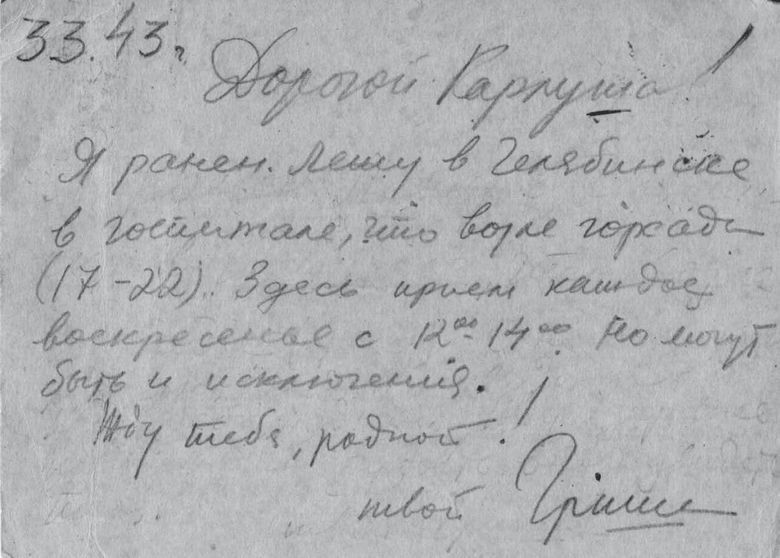 3.3.43 г.
Дорогой Карпуша!
Я ранен. Лежу в Челябинске
в госпитале, что возле горсада
(17-22). Здесь прием каждое
воскресенье с 12⁰⁰-14⁰⁰. Но могут
быть и исключения.
Жду тебя, родной!
твой Гриша